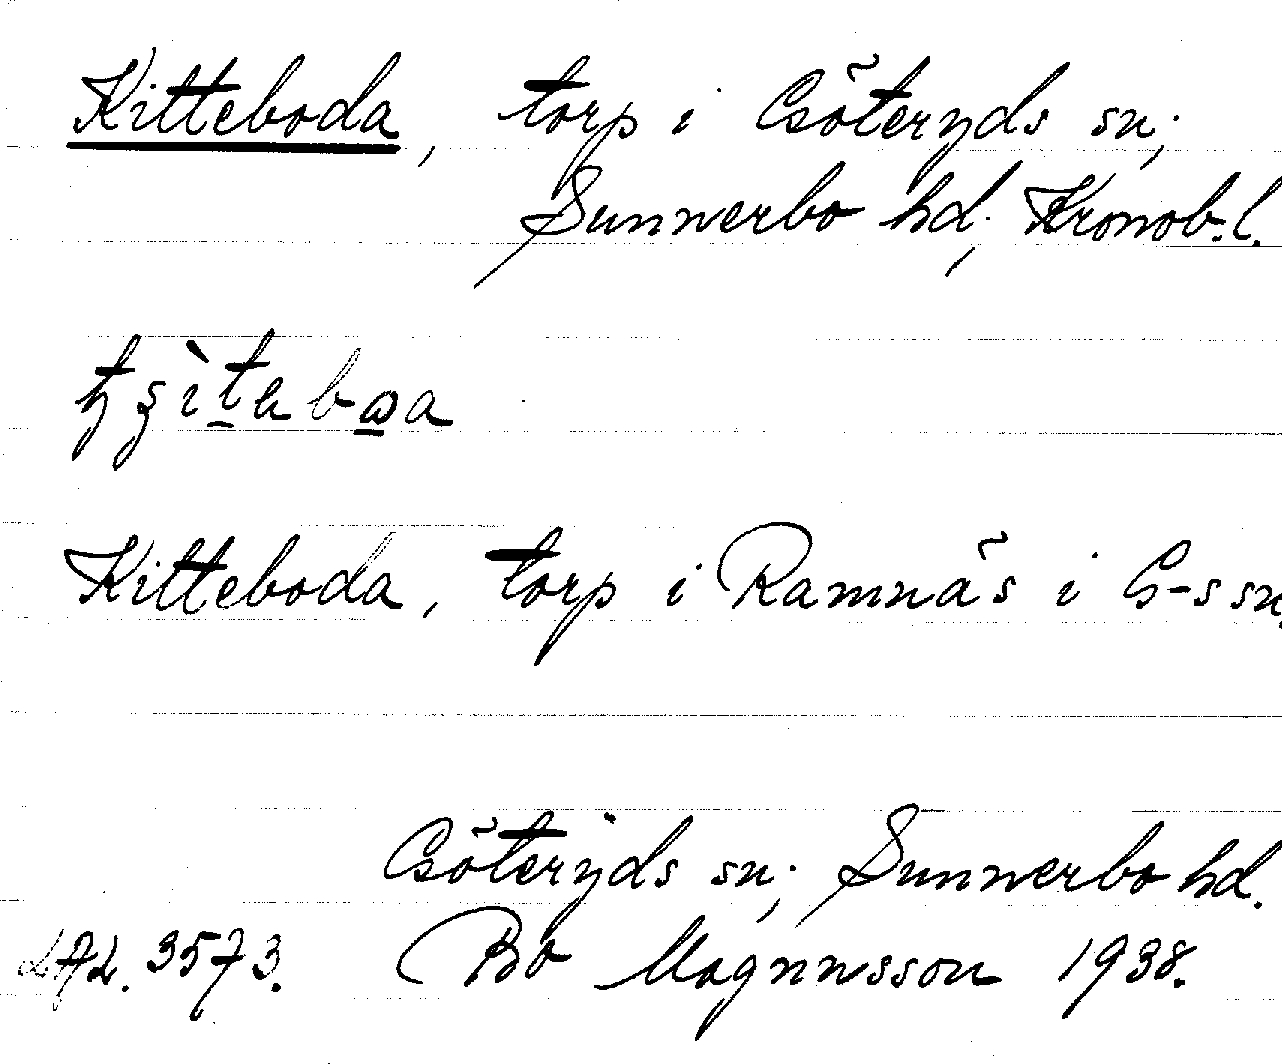 Kitteboda, torp i Göteryds sn;
Sunnerbo hd; Kronob.l.
Kitteboda, torp i Ramnäs i G-s sn.
Göteryds sn; Sunnerbo hd.
LAL. 3573. Bo Magnusson 1938.